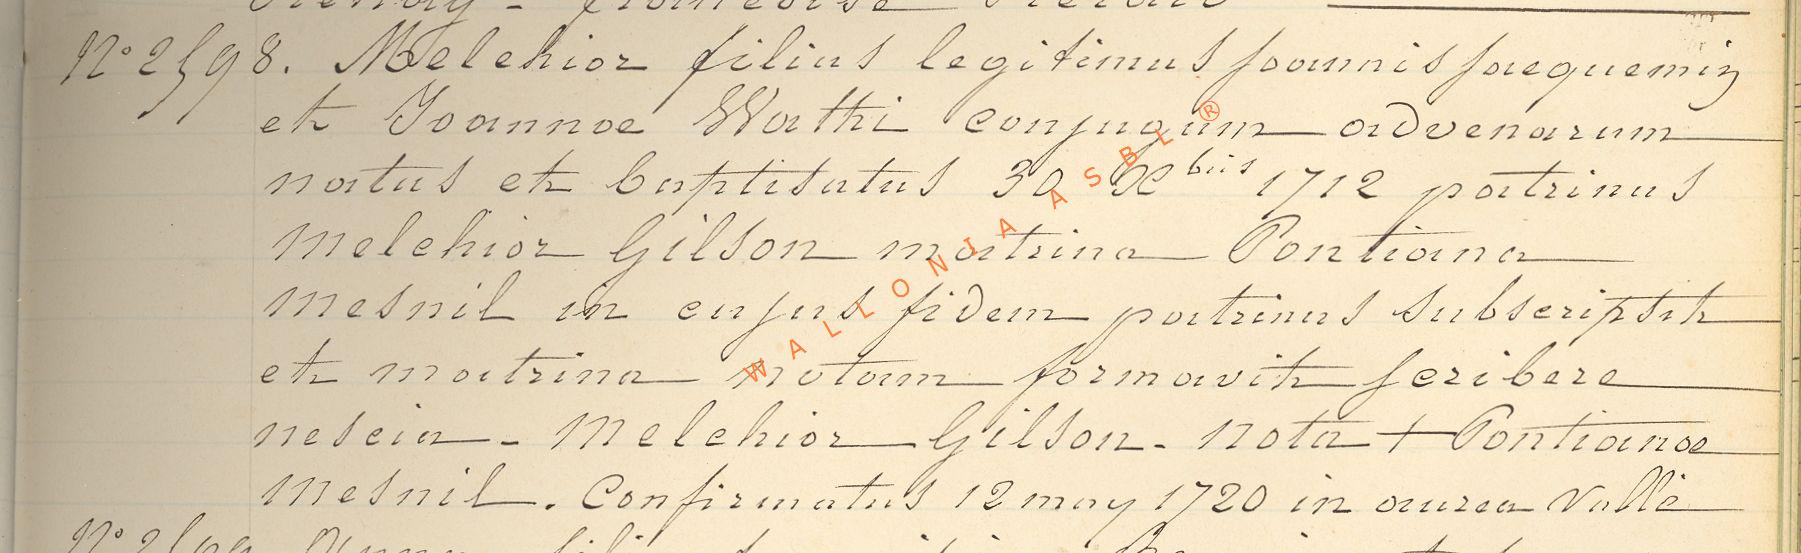 N° 2598. Melchior filius legitimus Joannis Jacquemin
et Joannae Wathi conjugum advenarum
natus et baptisatus 30 Xbris 1712 patrinus
Melchior Gilson matrina Pontiana
Mesnil in cujus fidem patrinus subscripsit
et matrina notam formavit scribere
nescia - Melchior Gilson - nota + Pontianae
Mesnil. Confirmatus 12 may 1720 in aurea valle
WALLONIA ASBL ®